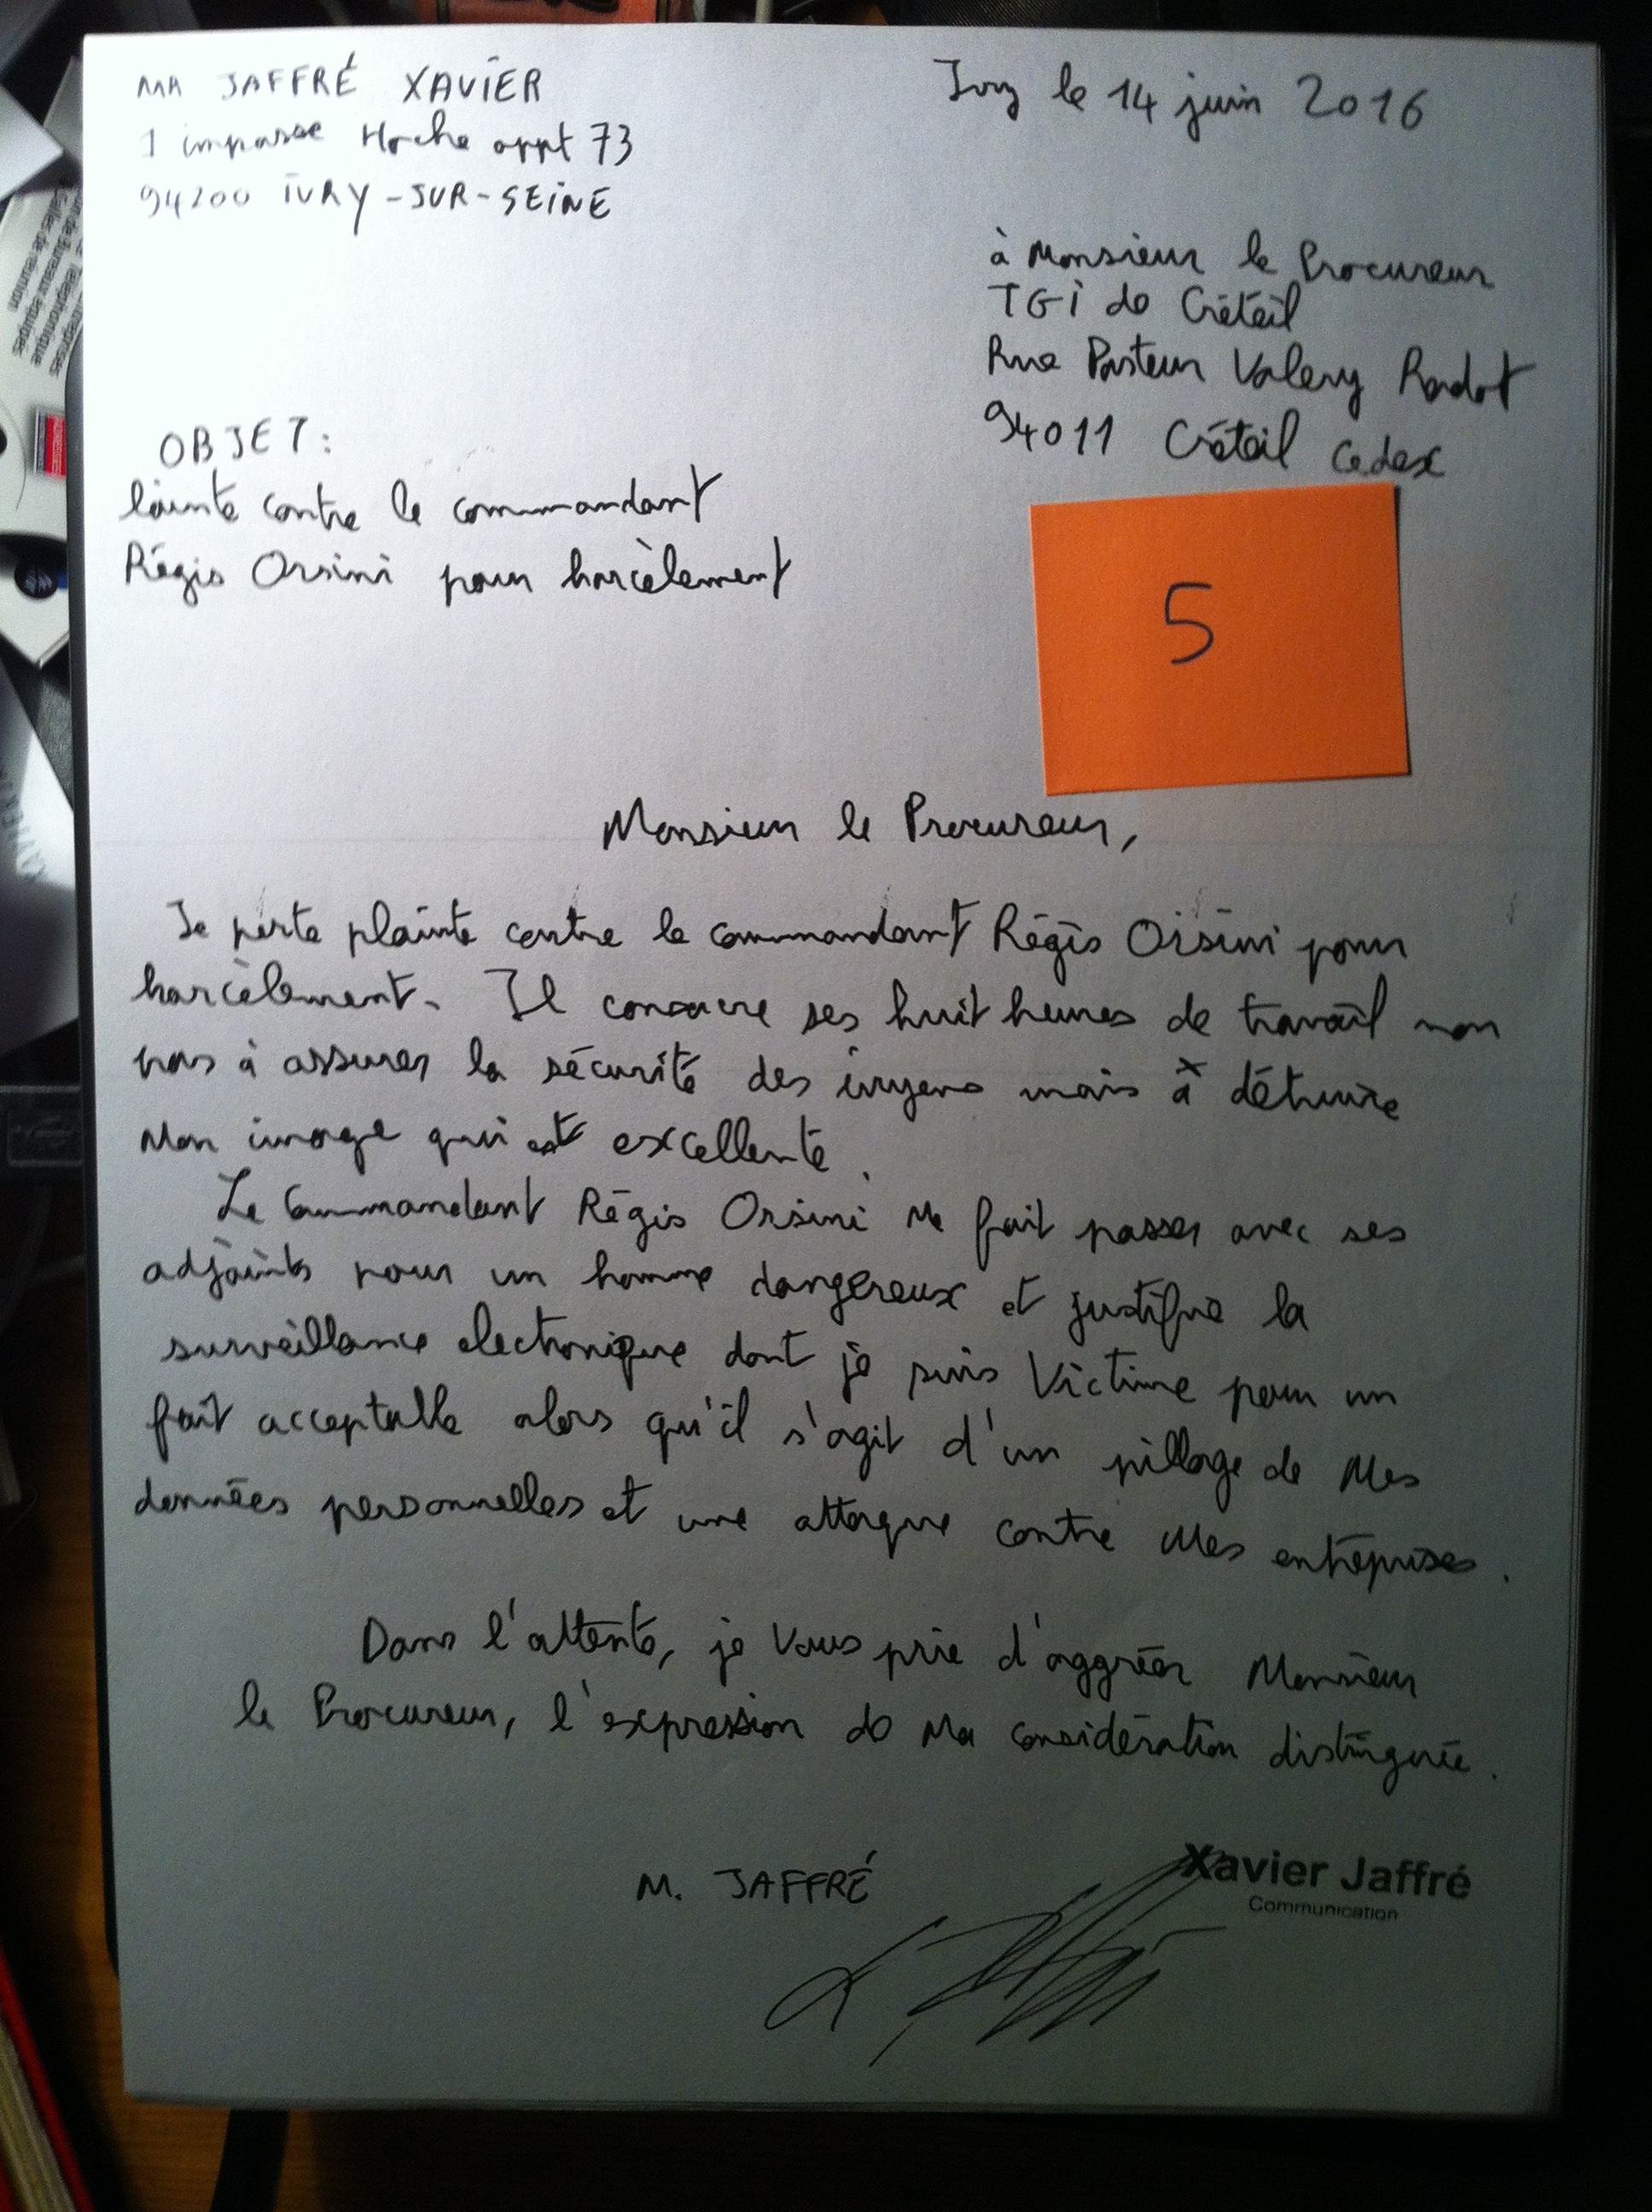 MR JAFFRÉ XAVIER
1 impasse Hoche appt 73
94200 IVRY-SUR-SEINE
Ivry le 14 juin 2016
à Monsieur le Procureur
TGI de Créteil
Rue Pasteur Valery Radot
94011 Créteil Cedex
OBJET:
lainte contre le commandant
Régis Orsini pour harcèlement
5
Monsieur le Procureur,
Je porte plainte contre le commandant Régis Orsini pour
harcèlement. Il consacre ses huit heures de travail non
pas à assurer la sécurité des ivryens mais à détruire
mon image qui est excellente.
Le Commandant Régis Orsini me fait passer avec ses
adjoints pour un homme dangereux et justifie la
surveillance electronique dont je suis victime pour un
fait acceptable alors qu'il s'agit d'un pillage de mes
données personnelles et une attaque contre mes entreprises.
Dans l'attente, je vous prie d'aggréer Monsieur
le Procureur, l'expression de ma considération distinguée.
M. JAFFRÉ
Xavier Jaffré
Communication